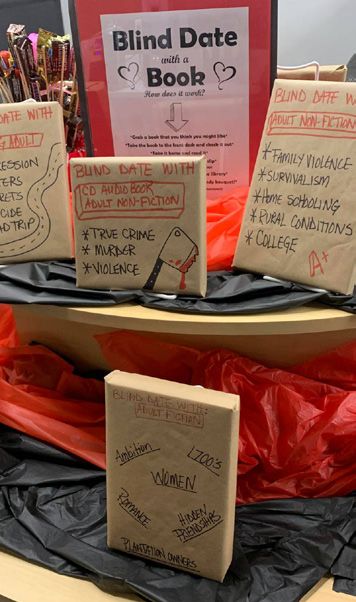 Blind Date
with a
Book
How does it work?
*Grab a book that you think you might like!
*Take the book to the front desk and check it out!
*Take it home and read it!
library!
bouquet!*
DATE WITH
ADULT
CIDE
AD TRIP
BLIND DATE WITH
CD AUDIOBOOK
ADULT NON-FICTION
*TRUE CRIME
*MURDER
*VIOLENCE
BLIND DATE WITH
ADULT NON-FICTION
*FAMILY VIOLENCE
*SURVIVALISM
*HOME SCHOOLING
*RURAL CONDITIONS
*COLLEGE
A+
BLIND DATE WITH:
ADULT FICTION
Ambition
1700's
WOMEN
ROMANCE
HIDDEN
FRIENDSHIPS
PLANTATION OWNERS